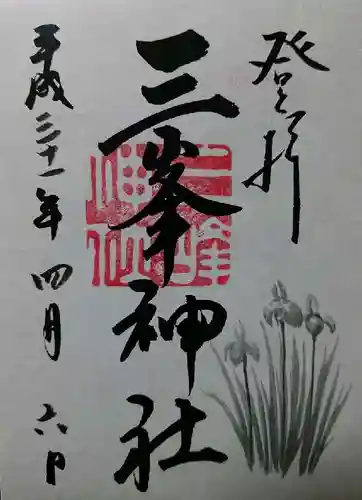 登拝
三峯神社
平成三十一年四月六日